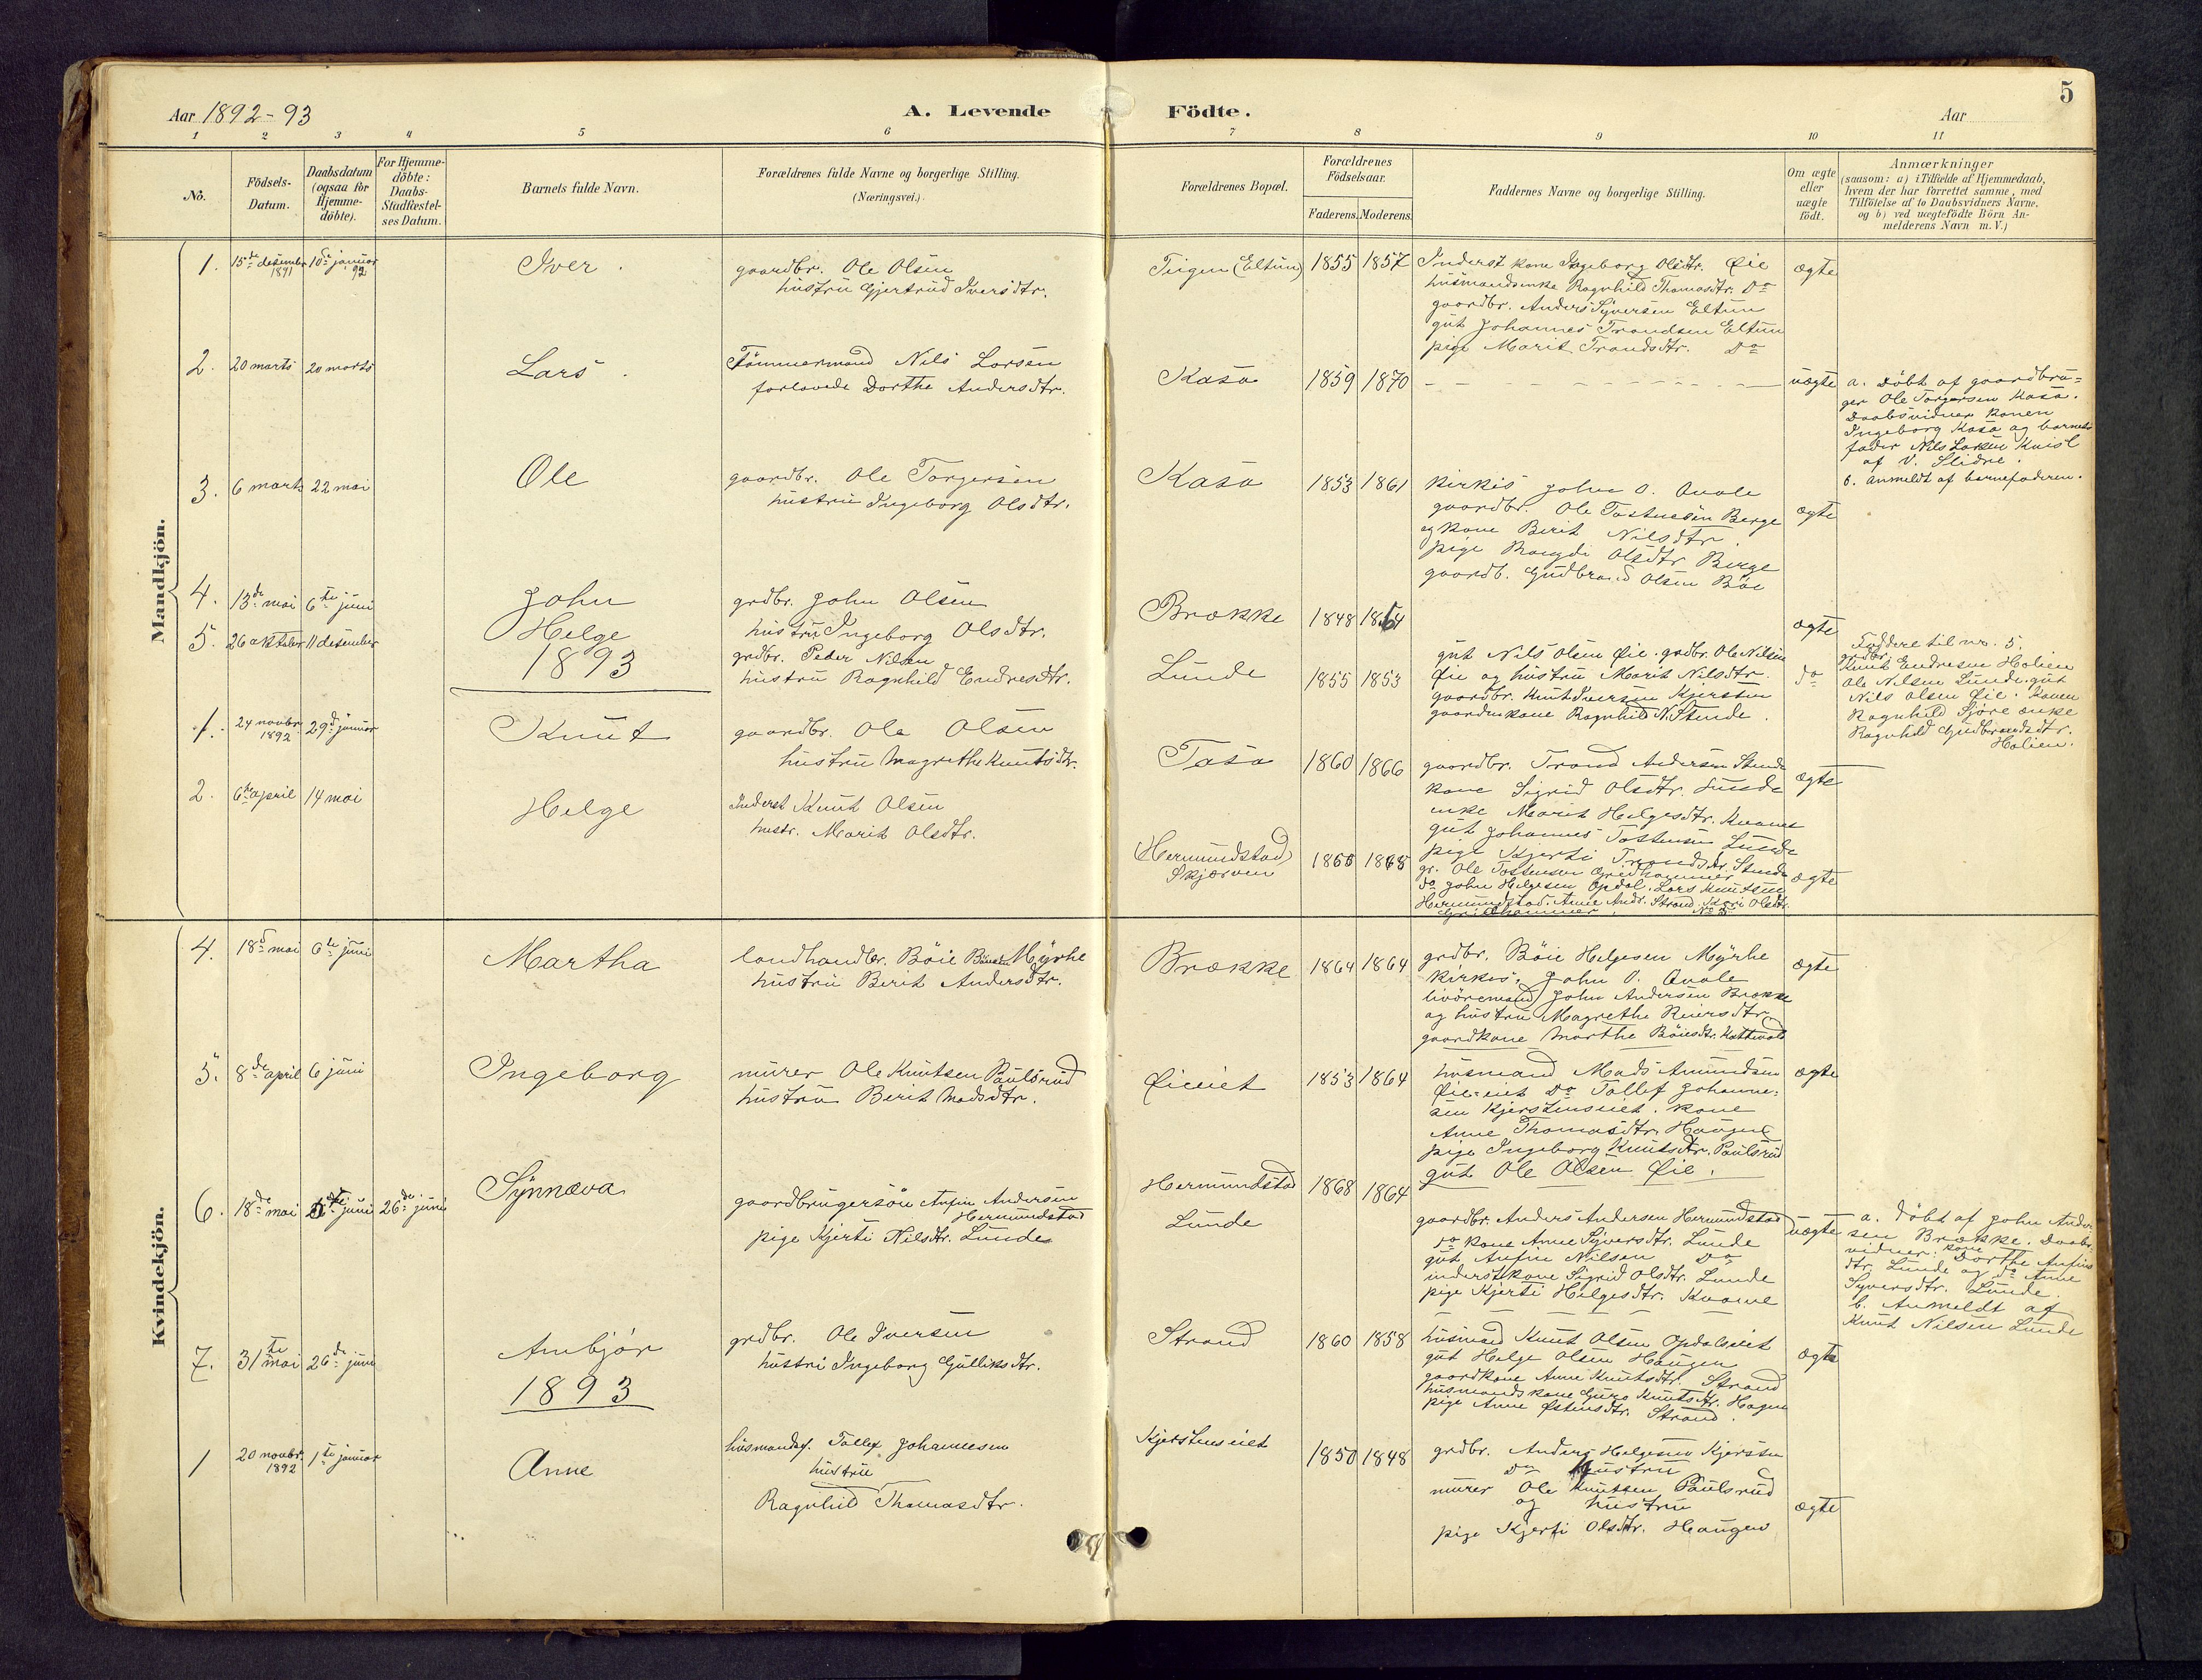 5
Aar 1892-93
A. Levende Födte.
Aar
1 2 3 4 5 6 7 8 9 10 11
No.
Födsels-Datum.
Daabsdatum (ogsaa for Hjemme-döbte).
For Hjemme-döbte: Daabs-Stadfæstel-ses Datum.
Barnets fulde Navn.
Forældrenes fulde Navne og borgerlige Stilling.
(Næringsvei.)
Forældrenes Bopæl.
Forældrenes Födselsaar.
Faderens. Moderens.
Faddernes Navne og borgerlige Stilling.
Om ægte eller uægte födt.
Anmærkninger
(saasom: a) i Tilfælde af Hjemmedaab,
hvem der har forrettet samme, med
Tilföielse af to Daabsvidners Navne,
og b) ved uægtefödte Börn An-
melderens Navn m. V.)
Mandkjön.
1. 15de desember 1891 10de januar 92
Iver.
gaardbr. Ole Olsen
hustru Gjertrud Iversdtr.
Tiigen (Eltun) 1855 1857
Inderst kone Ingeborg Olsdtr. Øie
husmandsenke Ragnhild Thomasdtr. Do
gaardbr. Anders Syversen Eltun
gut Johannes Trondsen Eltun
pige Marit Trondsdtr. Do
ægte
2. 20 marts 20 marts
Lars.
Tømmermand Nils Larsen
forlovede Dorthe Andersdtr.
Kasa 1859 1870
uægte
a. Døbt af gaardbru=
ger Ole Torgersen Kasa.
Daabsvidner konen
Ingeborg Kasa og barnets
fader Nils Larsen Kvisl
af V. Slidre.
b. Anmeldt af barnefaderen.
3. 6 marts 22 mai
Ole
gaardbr. Ole Torgersen
hustru Ingeborg Olsdtr.
Kasa 1853 1861
kirkes. John O. Qvale
gaardbr. Ole Tostensen Berge
og kone Berit Nilsdtr.
pige Olsdtr Berge
gaardb. Gudbrand Olsen Bøe
ægte
4. 13de mai 6te juni
John
grdbr. John Olsen
hustru Ingeborg Olsdtr.
Brokke 1848 1854
gut Nils Olsen Øie. grdbr. Ole Nilsen
Øie og hustru Marit Nilsdtr.
gaardbr. Knut Iversen Kjersten
gaardmkone Ragnhild N. Stende.
ægte
5. 26 oktober 11 desember
Helge
grdbr. Peder Nilsen
hustru Ragnhild Endresdtr.
Lunde 1855 1853
do
Faddere til nr. 5.
grdbr.
Knut Endresen Holien
Ole Nilsen Lunde. gut
Nils Olsen Øie. Konen
Ragnhild Gjøre enke
Ragnhild Gudbrandsdtr.
Holien.
1893
1. 24 novbr. 1892 29de januar
Knut
gaardbr. Ole Olsen
hustru Magrethe Knutsdtr.
Tasa 1860 1866
gaardbr. Trond Andersen Stende
kone Sigrid Olsdtr. Lunde
enke Marit Helgesdtr. Kvame
gut Johannes Tostensen Lunde
pige Kjersti Trondsdtr. Stende
ægte
2. 6te april 14 mai
Helge
Inderst Knut Olsen
hustr. Marit Olsdtr.
Hermundstad
Skjørven
1868
gr. Ole Tostensen Gridhammer
do John Helgesen Opdal. Lars Knutsen
Hermundstad. Anne Ands. Strand. Kari Olsdtr.
Gridhammer
ægte
Kvindekjön.
4. 18de mai 6te juni
Martha
landhandler. Bøie Bøiesen Myrhe
hustru Berit Andersdtr.
Brokke 1864 1864
grdbr. Bøie Helgesen Myrhe
kirkes. John O. Qvale
livøremand John Andersen Brokke
og hustru Magrethe Reiersdtr
gaardkone Marthe Bøiesdtr. Kattevold
ægte
5. 8de april 6 juni
Ingeborg
murer Ole Knutsen Paulsrud
hustru Berit Madsdtr.
Øieeiet 1853 1864
husmand Mads Amundsen
Øie=eiet Do Tollef Johanne=
sen Kjerstenseiet. kone
Anne Thomasdtr. Haugen
pige Ingeborg Knutsdtr. Paulsrud
gut Ole Olsen Øie.
ægte
6. 18de mai juni 26de juni
Synneva
gaardbrugersøn Anfin Andersen
Hermundstad
pige Kjersti Nilsdtr. Lunde
Hermundstad
Lunde
1868 1864
gaardbr. Anders Andersen Hermundstad
do kone Anne Syversdtr. Lunde
gut Anfin Nilsen Do
inderstkone Sigrid Olsdtr. Lunde
pige Kjersti Helgesdtr. Kvame
uægte
a. døbt af John Ander
sen Brokke. Daabs.
vidner: kone Dorthe Anfins
dtr. Lunde og do Anne
Syversdtr. Lunde.
b. Anmeldt af
Knut Nilsen Lunde
7. 31te mai 26de juni
Ambjør
grdbr. Ole Iversen
hustru Ingeborg Gulliksdtr.
Strand 1860 1858
husmand Knut Olsen Opdalseiet
gut Helge Olsen Haugen
gaardkone Anne Knutsdtr. Strand
husmandskone Guro Knutsdtr. Hagen
pige Anne Østensdtr. Strand.
ægte
1893
1 20 novbr. 1892 1te januar
Anne
husmandsf. Tollef Johannesen
hustru
Ragnhild Thomasdtr.
Kjerstenseiet 1850 1848
grdbr. Anders Helgesen Kjersten
Do hustru
murer Ole Knutsen Paulsrud
og hustru
pige Kjersti Olsdtr. Haugen
ægte